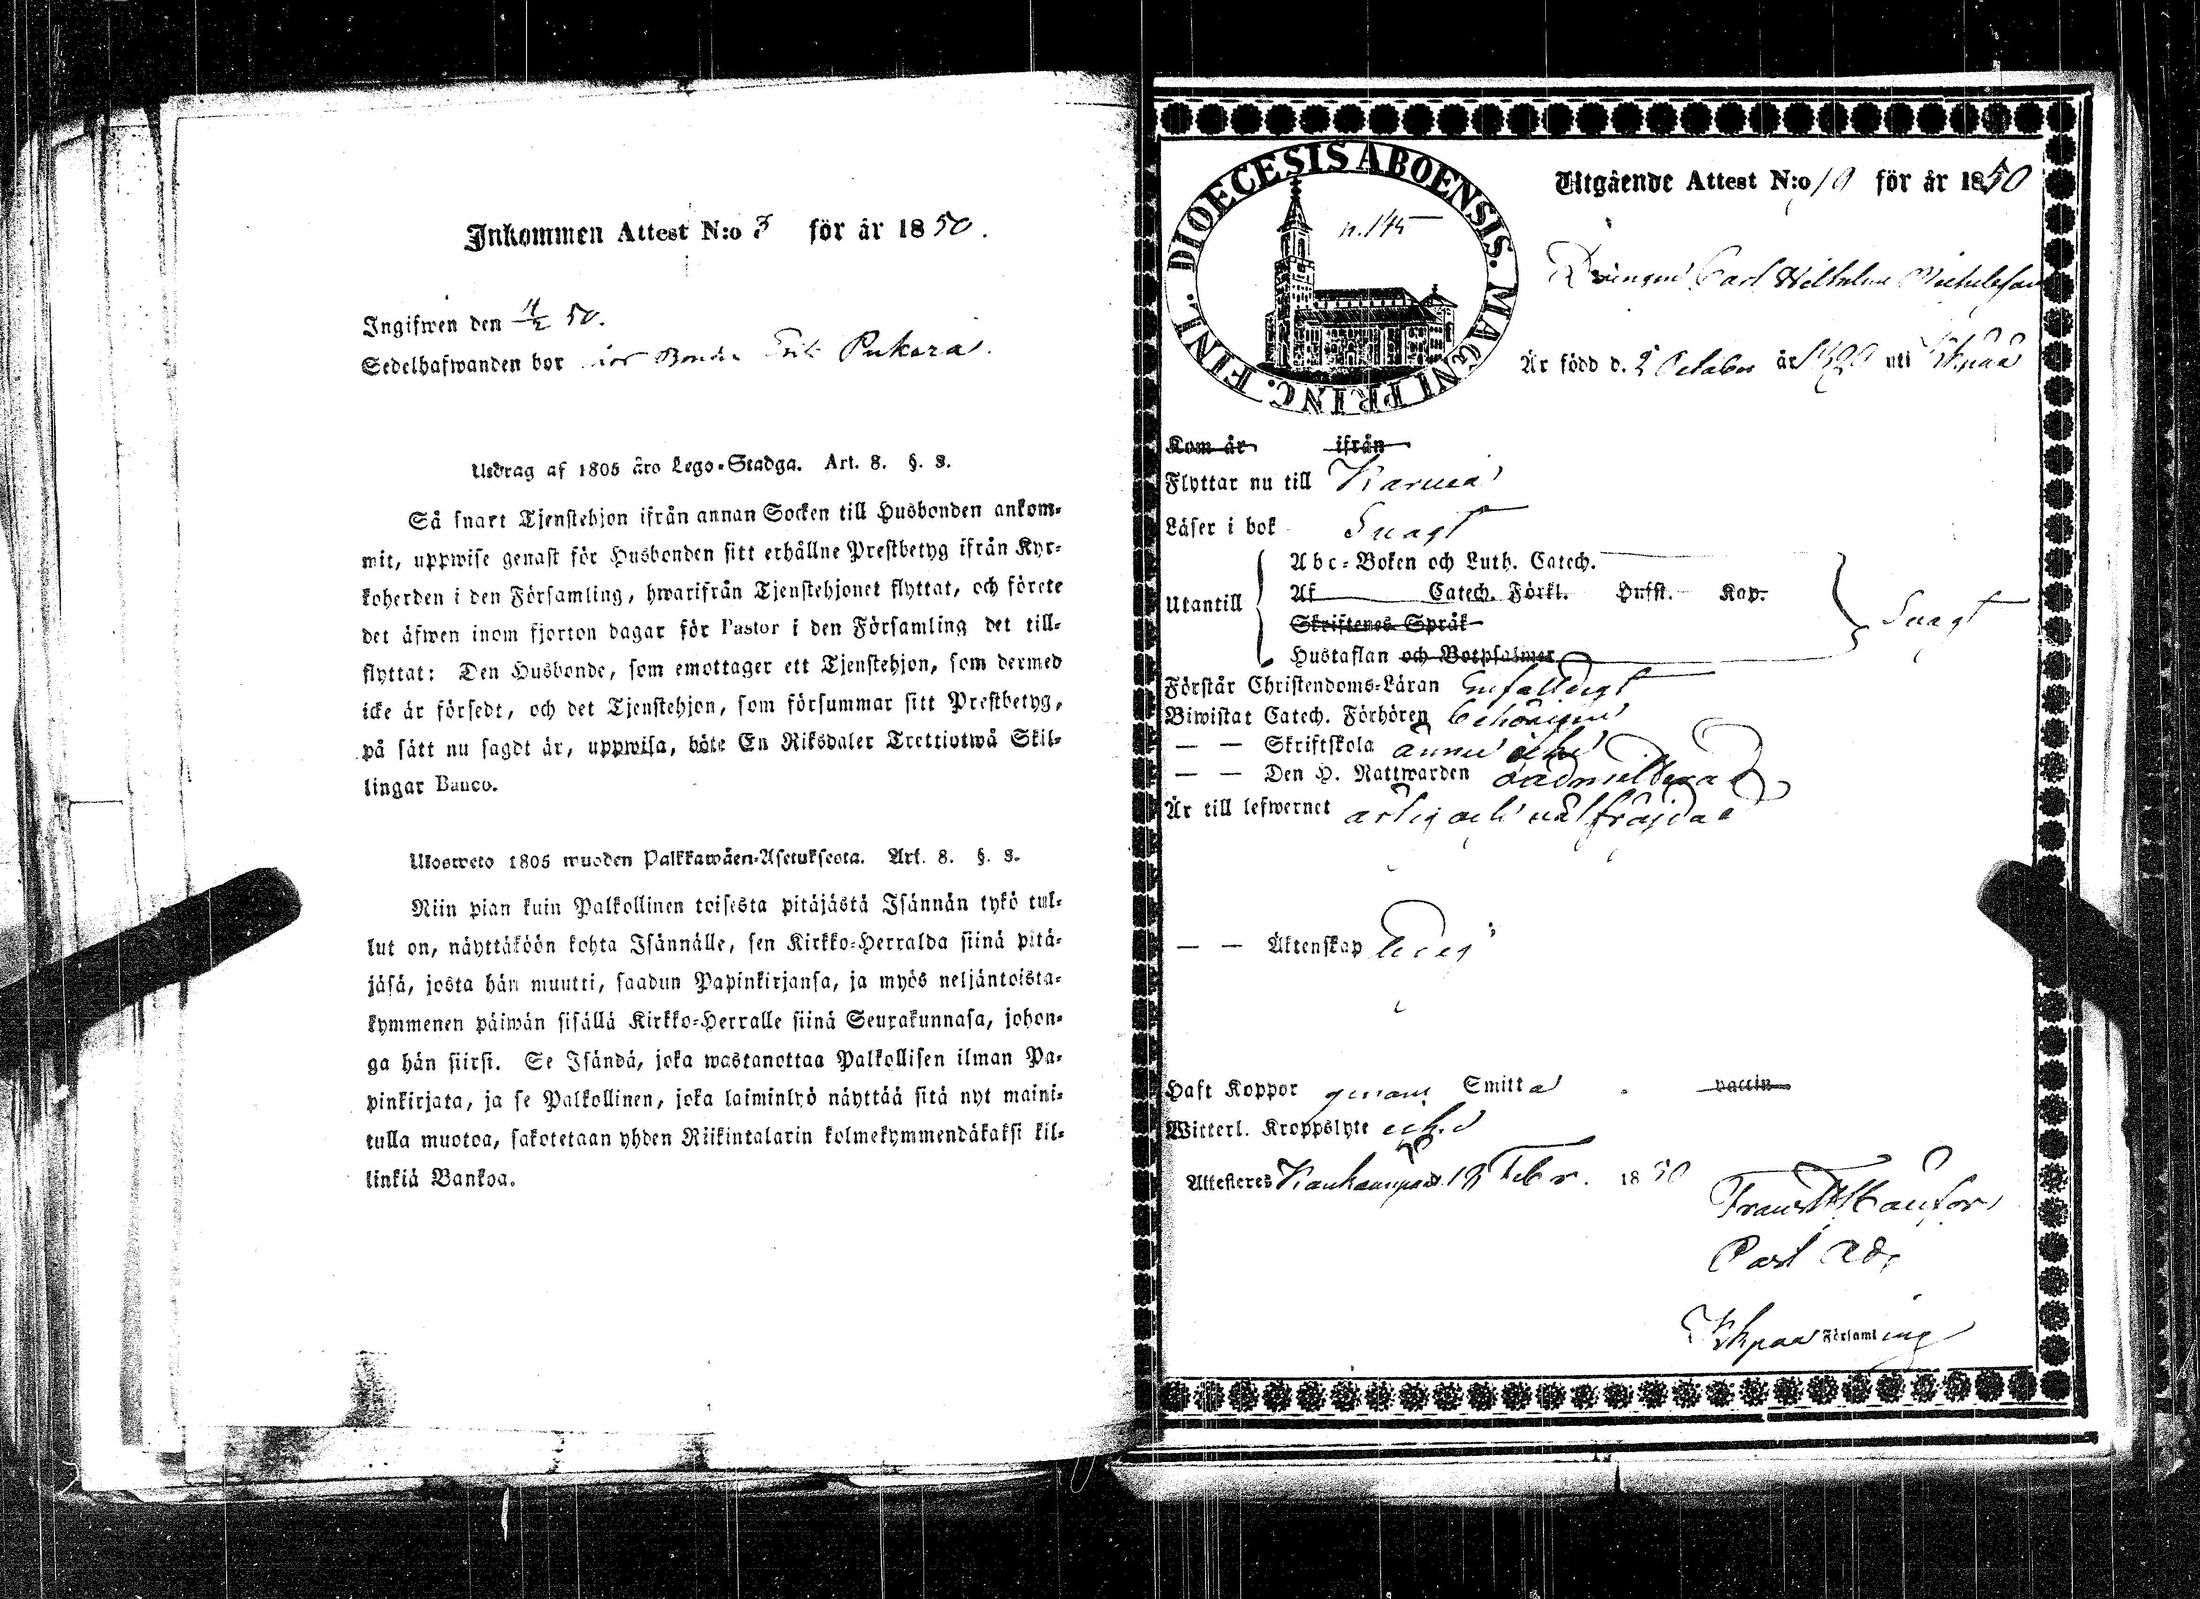 Inkommen Attest N:o 3 för år 1850.
Ingifwen den 4/2 50.
Sedelhafwanden bor hos Bonden Erik Pukara.
Utdrag af 1805 års Lego-Stadga. Art. 8. §. 8.
Så snart Tjenstehjon ifrån annan Socken till Husbonden ankom-
mit, uppwise genast för Husbonden sitt erhållne Prestbetyg ifrån Kyr-
koherden i den Församling, hwarifrån Tjenstehjonet flyttat, och förete
det äfwen inom fjorton dagar för Pastor i den Församling det till-
flyttat: Den Husbonde, som emottager ett Tjenstehjon, som dermed
icke är försedt, och det Tjenstehjon, som försummar sitt Prestbetyg,
på sätt nu sagdt är, uppwisa, böte En Riksdaler Trettiotwå Skil-
lingar Banco.
Ulosweto 1805 wuoden Palkkawäen-Asetuksesta. Art. 8. §. 8.
Niin pian kuin Palkollinen toisesta pitäjästä Isännän tykö tul-
lut on, näyttäköön kohta Isännälle, sen Kirkko-Herralda siinä pitä-
jäsä, josta hän muutti, saadun Papinkirjansa, ja myös neljäntoista-
kymmenen päiwän sisällä Kirkko-Herralle siinä Seurakunnasa, johon-
ga hän siirsi. Se Isändä, joka wastanottaa Palkollisen ilman Pa-
pinkirjata, ja se Palkollinen, joka laiminlyö näyttää sitä nyt maini-
tulla muotoa, sakotetaan yhden Riikintalarin kolmekymmendäkaksi kil-
linkiä Bankoa.
DIOECESIS ABOENSIS. MAGNI PRINC. FINL.
n. 145
Utgående Attest N:o 10 för år 1850
Drängen Carl Wilhelm Michelsson
Är född d. 2 October år uti
Kom år ifrån
Flyttar nu till Karuna
Läser i bok Svagt
Abc-Boken och Luth. Catech.
Utantill Af Catech. Förkl. Husst. Kap. Svagt
Skriftenes Språk
Hustaflan och Botpsalmer
Förstår Christendoms-Läran Enfaldigt
Biwistat Catech. Förhören behörigen
— — Skriftskola ännu icke
— — Den H. Nattwarden oadmitterad
Är till lefwernet ärlig och välfräjdad
— — Äktenskap ledig
Haft Koppor genom Smitta vaccin
Witterl. Kroppslyte icke
Attesteras 12 Febr. 1850
Past. Adj.
Församling